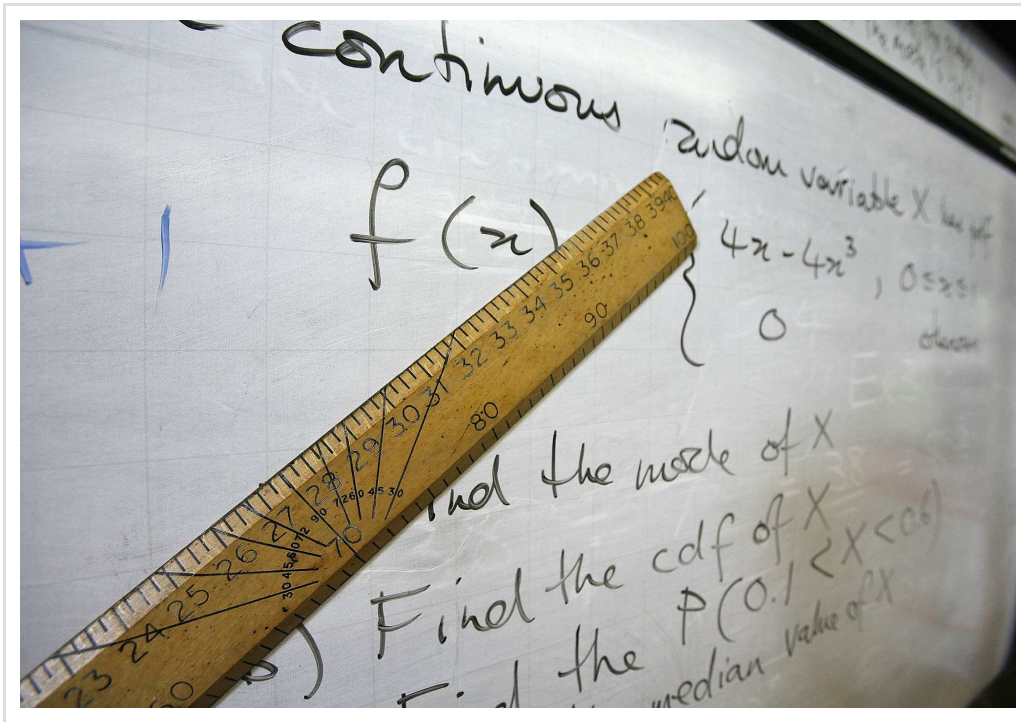 continuous random variable X has pdf
f(x) { 4x - 4x³ , 0≤x≤1
0
nd the mode of X
) Find the cdf of X
Find the P(0.1 < X < 0.6)
median value of X
23 24 25 26 27 28 29 30 31 32 33 34 35 36 37 38 39 40
70 80 90 100
90 72 60 45 30
30 45 60 72